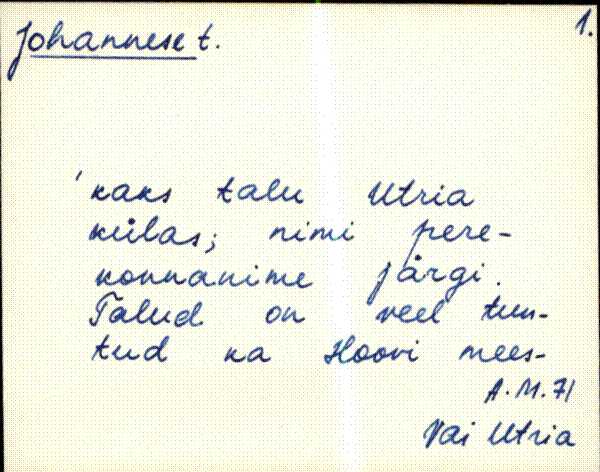 Johannese t.
1.
'kaks talu Utria
külas; nimi pere-
konnanime järgi.
Talud on veel tun-
tud ka Hoovi mees-
A.M.71
Vai Utria